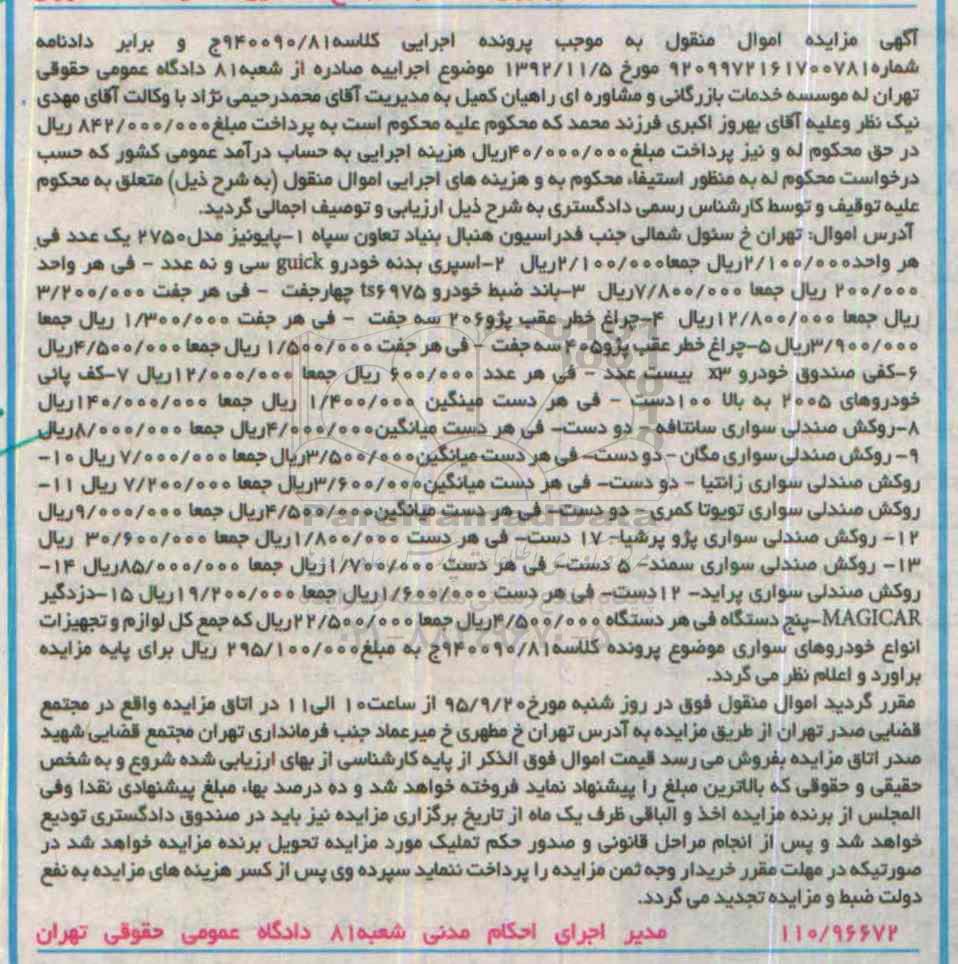 آگهی مزایده اموال منقول به موجب پرونده اجرایی کلاسه۹۴۰۰۹۰/۸۱ج و برابر دادنامه
شماره۹۲۰۹۹۷۲۱۶۱۷۰۰۷۸۱ مورخ ۱۳۹۲/۱۱/۵ موضوع اجراییه صادره از شعبه۸۱ دادگاه عمومی حقوقی
تهران له موسسه خدمات بازرگانی و مشاوره ای راهیان کمیل به مدیریت آقای محمدرحیمی نژاد با وکالت آقای مهدی
نیک نظر وعلیه آقای بهروز اکبری فرزند محمد که محکوم علیه محکوم است به پرداخت مبلغ۸۴۲/۰۰۰/۰۰۰ ریال
در حق محکوم له و نیز پرداخت مبلغ۴۰/۰۰۰/۰۰۰ریال هزینه اجرایی به حساب درآمد عمومی کشور که حسب
درخواست محکوم له به منظور استیفاء محکوم به و هزینه های اجرایی اموال منقول (به شرح ذیل) متعلق به محکوم
علیه توقیف و توسط کارشناس رسمی دادگستری به شرح ذیل ارزیابی و توصیف اجمالی گردید.
آدرس اموال: تهران خ سئول شمالی جنب فدراسیون هنبال بنیاد تعاون سپاه ۱-پایونیز مدل۲۷۵۰ یک عدد فی
هر واحد۲/۱۰۰/۰۰۰ریال جمعا۲/۱۰۰/۰۰۰ریال ۲-اسپری بدنه خودرو guick سی و نه عدد - فی هر واحد
۲۰۰/۰۰۰ ریال جمعا ۷/۸۰۰/۰۰۰ریال ۳-باند ضبط خودرو ts۶۹۷۵ چهارجفت - فی هر جفت ۳/۲۰۰/۰۰۰
ریال جمعا ۱۲/۸۰۰/۰۰۰ریال ۴-چراغ خطر عقب پژو۲۰۶ سه جفت - فی هر جفت ۱/۳۰۰/۰۰۰ ریال جمعا
۳/۹۰۰/۰۰۰ریال ۵-چراغ خطر عقب پژو۴۰۵ سه جفت - فی هر جفت ۱/۵۰۰/۰۰۰ ریال جمعا ۴/۵۰۰/۰۰۰ریال
۶-کفی صندوق خودرو x۳ بیست عدد - فی هر عدد ۶۰۰/۰۰۰ ریال جمعا ۱۲/۰۰۰/۰۰۰ریال ۷-کف پائی
خودروهای ۲۰۰۵ به بالا ۱۰۰دست - فی هر دست مینگین ۱/۴۰۰/۰۰۰ ریال جمعا ۱۴۰/۰۰۰/۰۰۰ریال
۸-روکش صندلی سواری سانتافه - دو دست- فی هر دست میانگین۴/۰۰۰/۰۰۰ریال جمعا ۸/۰۰۰/۰۰۰ریال
۹- روکش صندلی سواری مگان - دو دست- فی هر دست میانگین۳/۵۰۰/۰۰۰ریال جمعا ۷/۰۰۰/۰۰۰ ریال ۱۰-
روکش صندلی سواری زانتیا - دو دست- فی هر دست میانگین۳/۶۰۰/۰۰۰ریال جمعا ۷/۲۰۰/۰۰۰ ریال ۱۱-
روکش صندلی سواری تویوتا کمری- دو دست- فی هر دست میانگین۴/۵۰۰/۰۰۰ریال جمعا ۹/۰۰۰/۰۰۰ریال
۱۲- روکش صندلی سواری پژو پرشیا- ۱۷ دست- فی هر دست ۱/۸۰۰/۰۰۰ریال جمعا ۳۰/۶۰۰/۰۰۰ ریال
۱۳- روکش صندلی سواری سمند- ۵ دست- فی هر دست ۱/۷۰۰/۰۰۰ریال جمعا ۸۵/۰۰۰/۰۰۰ریال ۱۴-
روکش صندلی سواری پراید- ۱۲دست- فی هر دست ۱/۶۰۰/۰۰۰ریال جمعا ۱۹/۲۰۰/۰۰۰ریال ۱۵-دزدگیر
MAGICAR-پنج دستگاه فی هر دستگاه ۴/۵۰۰/۰۰۰ریال جمعا ۲۲/۵۰۰/۰۰۰ریال که جمع کل لوازم و تجهیزات
انواع خودروهای سواری موضوع پرونده کلاسه۹۴۰۰۹۰/۸۱ج به مبلغ۲۹۵/۱۰۰/۰۰۰ ریال برای پایه مزایده
براورد و اعلام نظر می گردد.
مقرر گردید اموال منقول فوق در روز شنبه مورخ۹۵/۹/۲۰ از ساعت۱۰ الی۱۱ در اتاق مزایده واقع در مجتمع
قضایی صدر تهران از طریق مزایده به آدرس تهران خ مطهری خ میرعماد جنب فرمانداری تهران مجتمع قضایی شهید
صدر اتاق مزایده بفروش می رسد قیمت اموال فوق الذکر از پایه کارشناسی از بهای ارزیابی شده شروع و به شخص
حقیقی و حقوقی که بالاترین مبلغ را پیشنهاد نماید فروخته خواهد شد و ده درصد بهاء مبلغ پیشنهادی نقدا وفی
المجلس از برنده مزایده اخذ و الباقی ظرف یک ماه از تاریخ برگزاری مزایده نیز باید در صندوق دادگستری تودیع
خواهد شد و پس از انجام مراحل قانونی و صدور حکم تملیک مورد مزایده تحویل برنده مزایده خواهد شد در
صورتیکه در مهلت مقرر خریدار وجه ثمن مزایده را پرداخت ننماید سپرده وی پس از کسر هزینه های مزایده به نفع
دولت ضبط و مزایده تجدید می گردد.
۱۱۰/۹۶۶۷۲ مدیر اجرای احکام مدنی شعبه۸۱ دادگاه عمومی حقوقی تهران